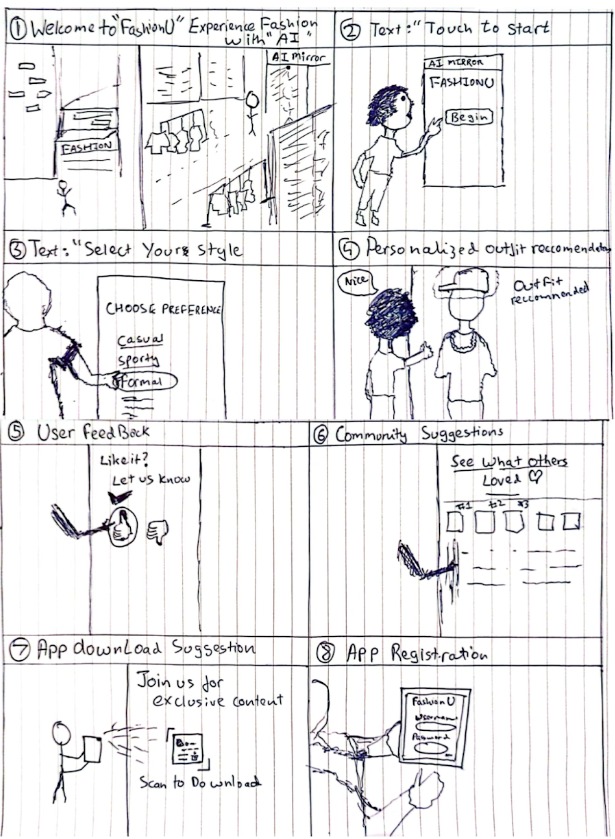 ① Welcome to "FashionU" Experience Fashion
with "AI"
AI mirror
FASHION
② Text: "Touch to start
AI MIRROR
FASHIONU
Begin
③ Text: "Select Your Style
CHOOSE PREFERENCE
Casual
Sporty
formal
④ Personalized outfit reccomendation
Nice
Outfit
reccommended
⑤ User FeedBack
Like it?
Let us know
⑥ Community Suggestions
See what others
Loved ♡
#1 #2 #3
⑦ App download Suggestion
Join us for
exclusive content
Scan to Download
⑧ App Registration
Fashion U
Username
Password